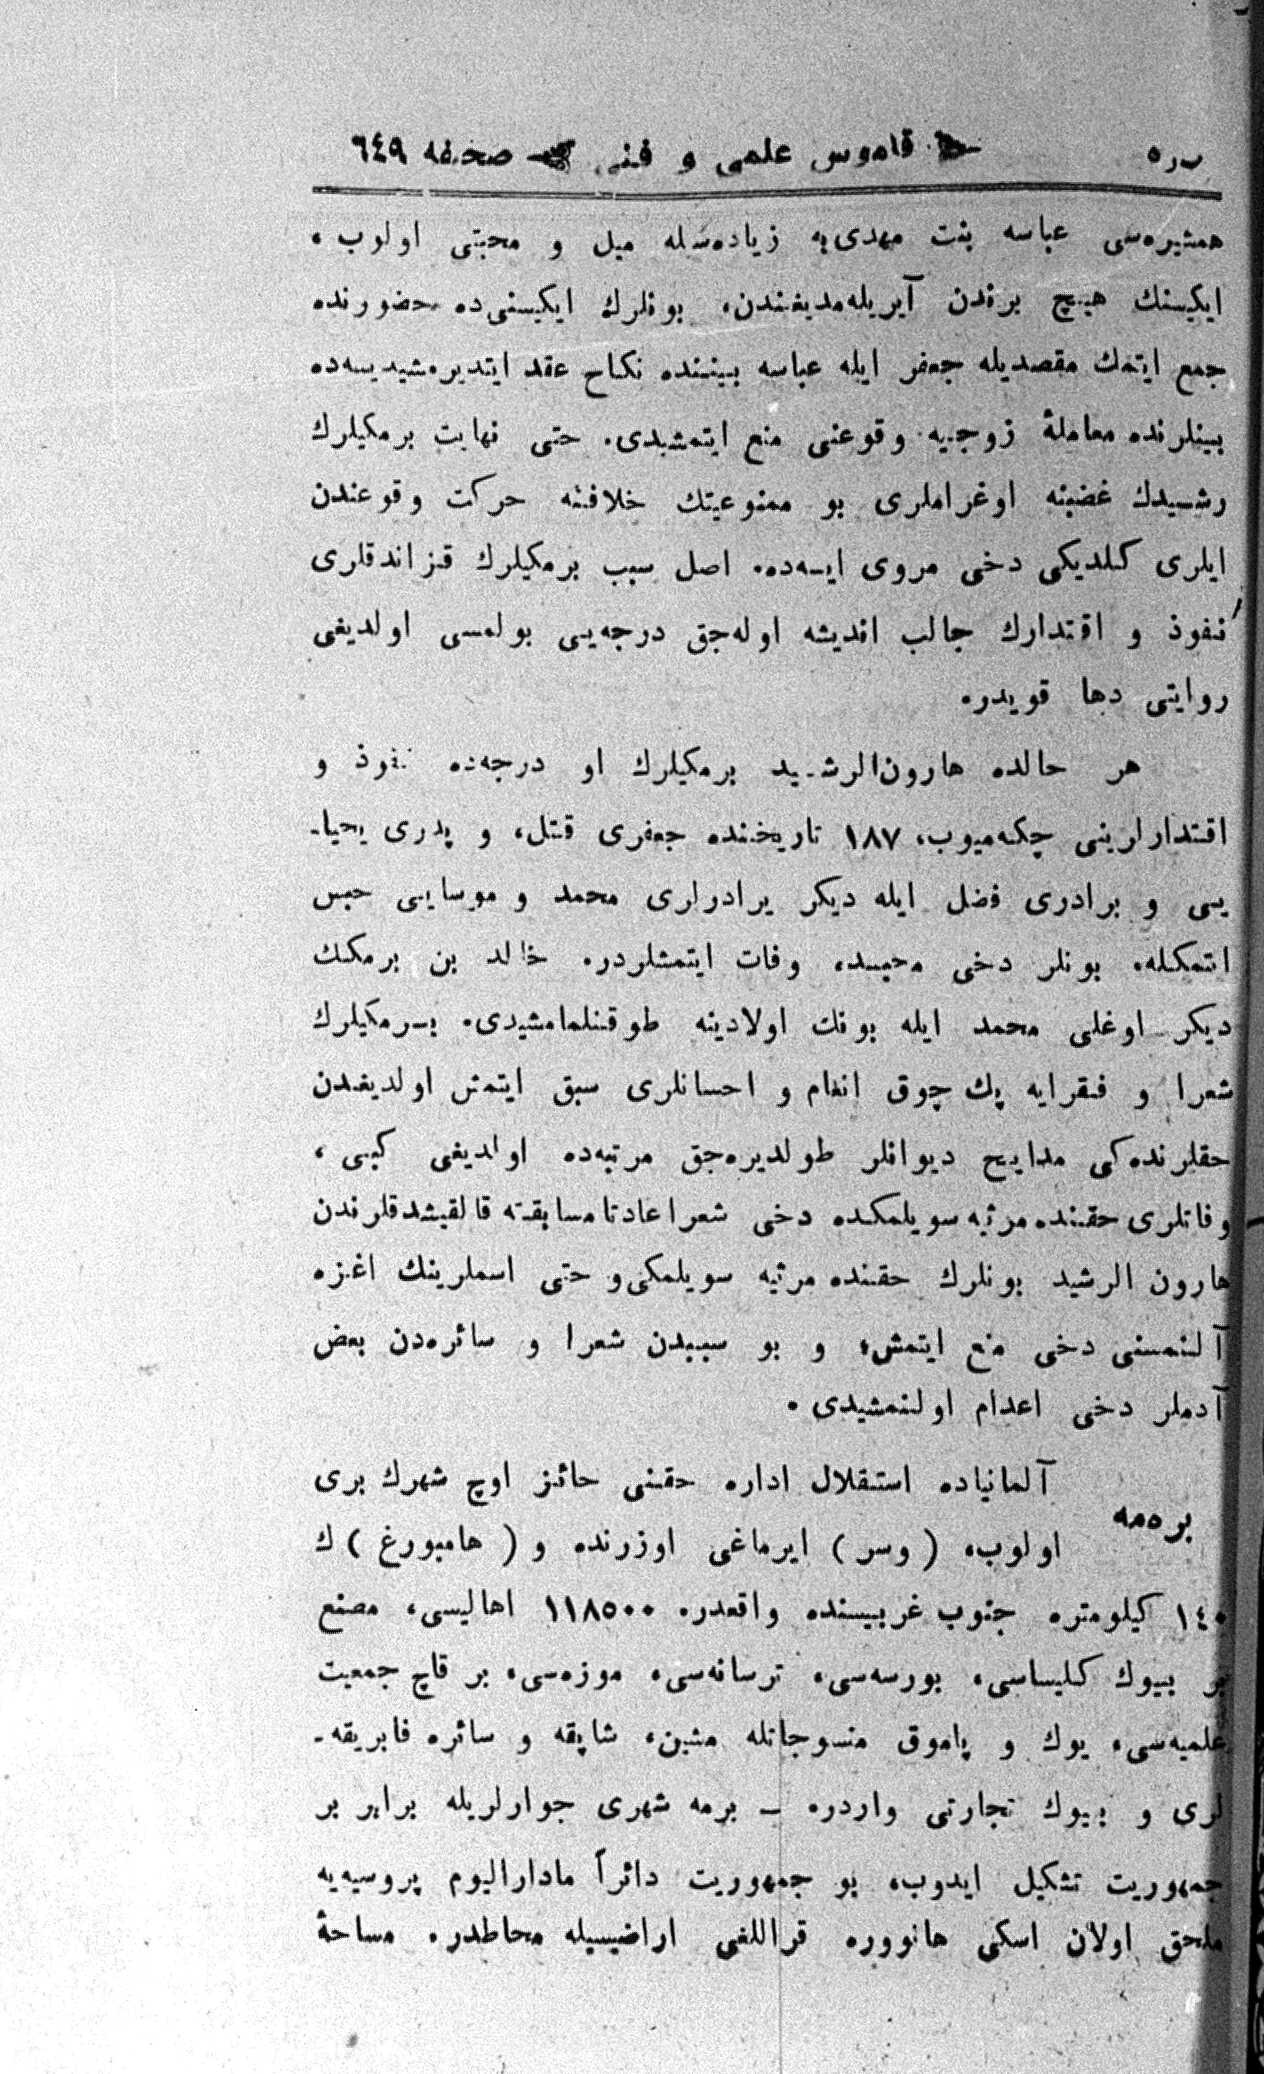 بره قاموس علمی و فنی صحیفه ٦٤٩
همشیره‌سی عباسه بنت مهدی‌یه زیاده‌سله میل و محبتی اولوب،
ایکیسنك هیچ برندن آیریله‌مدیغندن، بونلرك ایکیسنی‌ده حضورنده
جمع ایتمك مقصدیله جعفر ایله عباسه بیننده نکاح عقد ایتدیرمشیدیسه‌ده
بینلرنده معاملهٔ زوجیه وقوعنی منع ایتمشیدی. حتی نهایت برمکیلرك
رشیدك غضبنه اوغراملری بو ممنوعیتك خلافنه حرکت وقوعندن
ایلری کلدیکی دخی مروی ایسه‌ده. اصل سبب برمکیلرك قزاندقلری
نفوذ و اقتدارك جالب اندیشه اوله‌جق درجه‌یی بولمسی اولدیغی
روایتی دها قویدر.
هر حالده هارون‌الرشید برمکیلرك او درجه‌ده نفوذ و
اقتدارلرینی چکه‌میوب، ١٨٧ تاریخنده جعفری قتل، و پدری یحیا-
یی و برادری فضل ایله دیکر برادرلری محمد و موسایی حبس
ایتمکله. بونلر دخی محبسد، وفات ایتمشلردر. خالد بن برمکك
دیکر اوغلی محمد ایله بونك اولادینه طوقنلمامشیدی. برمکیلرك
شعرا و فقرایه پك چوق انعام و احسانلری سبق ایتمش اولدیغندن
حقلرنده‌کی مدایح دیوانلر طولدیره‌جق مرتبه‌ده اولدیغی کبی،
وفاتلری حقنده مرثیه سویلمکده دخی شعرا عادتا مسابقته قالقیشدقلرندن
هارون الرشید بونلرك حقنده مرثیه سویلمکی و حتی اسملرینك اغزه
آلنمسنی دخی منع ایتمش، و بو سببدن شعرا و سائره‌دن بعض
آدملر دخی اعدام اولنمشیدی.
برمه آلمانیاده استقلال اداره حقنی حائز اوچ شهرك بری
اولوب، (وسر) ایرماغی اوزرنده و (هامبورغ) ك
١٤٠ کیلومتره جنوب غربیسنده واقعدر. ١١٨٥٠٠ اهالیسی، مصنع
بر بیوك کلیساسی، بورسه‌سی، ترسانه‌سی، موزه‌سی، بر قاچ جمعیت
علمیه‌سی، یوك و پاموق منسوجاتله مشین، شاپقه و سائره فابریقه-
لری و بیوك تجارتی واردر. — برمه شهری جوارلریله برابر بر
جمهوریت تشکیل ایدوب، بو جمهوریت دائراً مادارالیوم پروسیه‌یه
ملحق اولان اسکی هانووره قراللغی اراضیسیله محاطدر. مساحهٔ